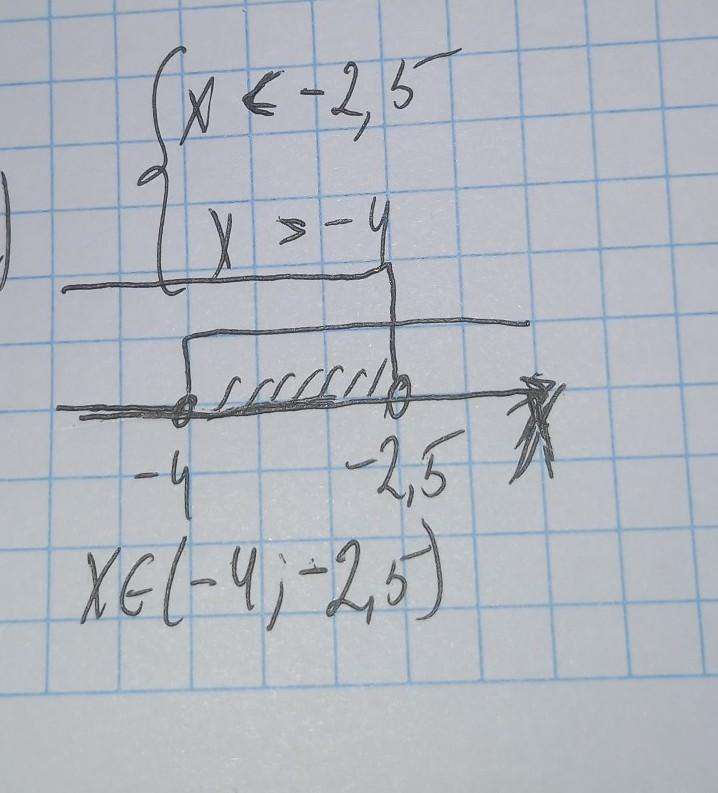 x < -2,5
x > -4
-4 -2,5 x
x∈(-4;-2,5)